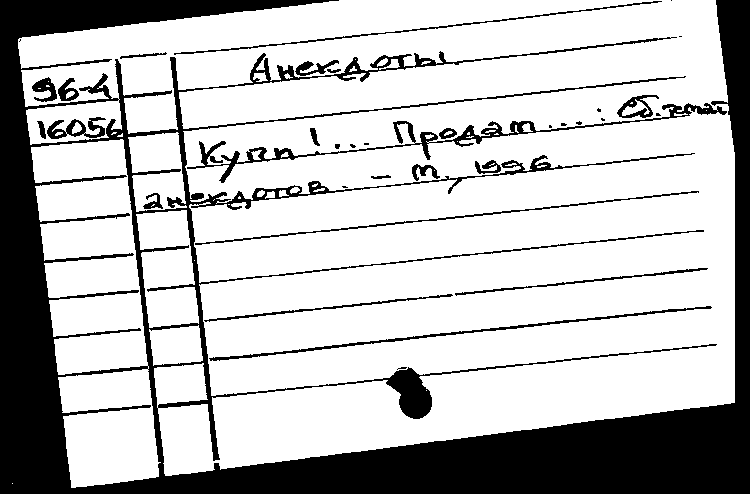 Анекдоты.
96-4
16056
Купи!... Продам...: Сб. темат.
анекдотов. – М., 1996.